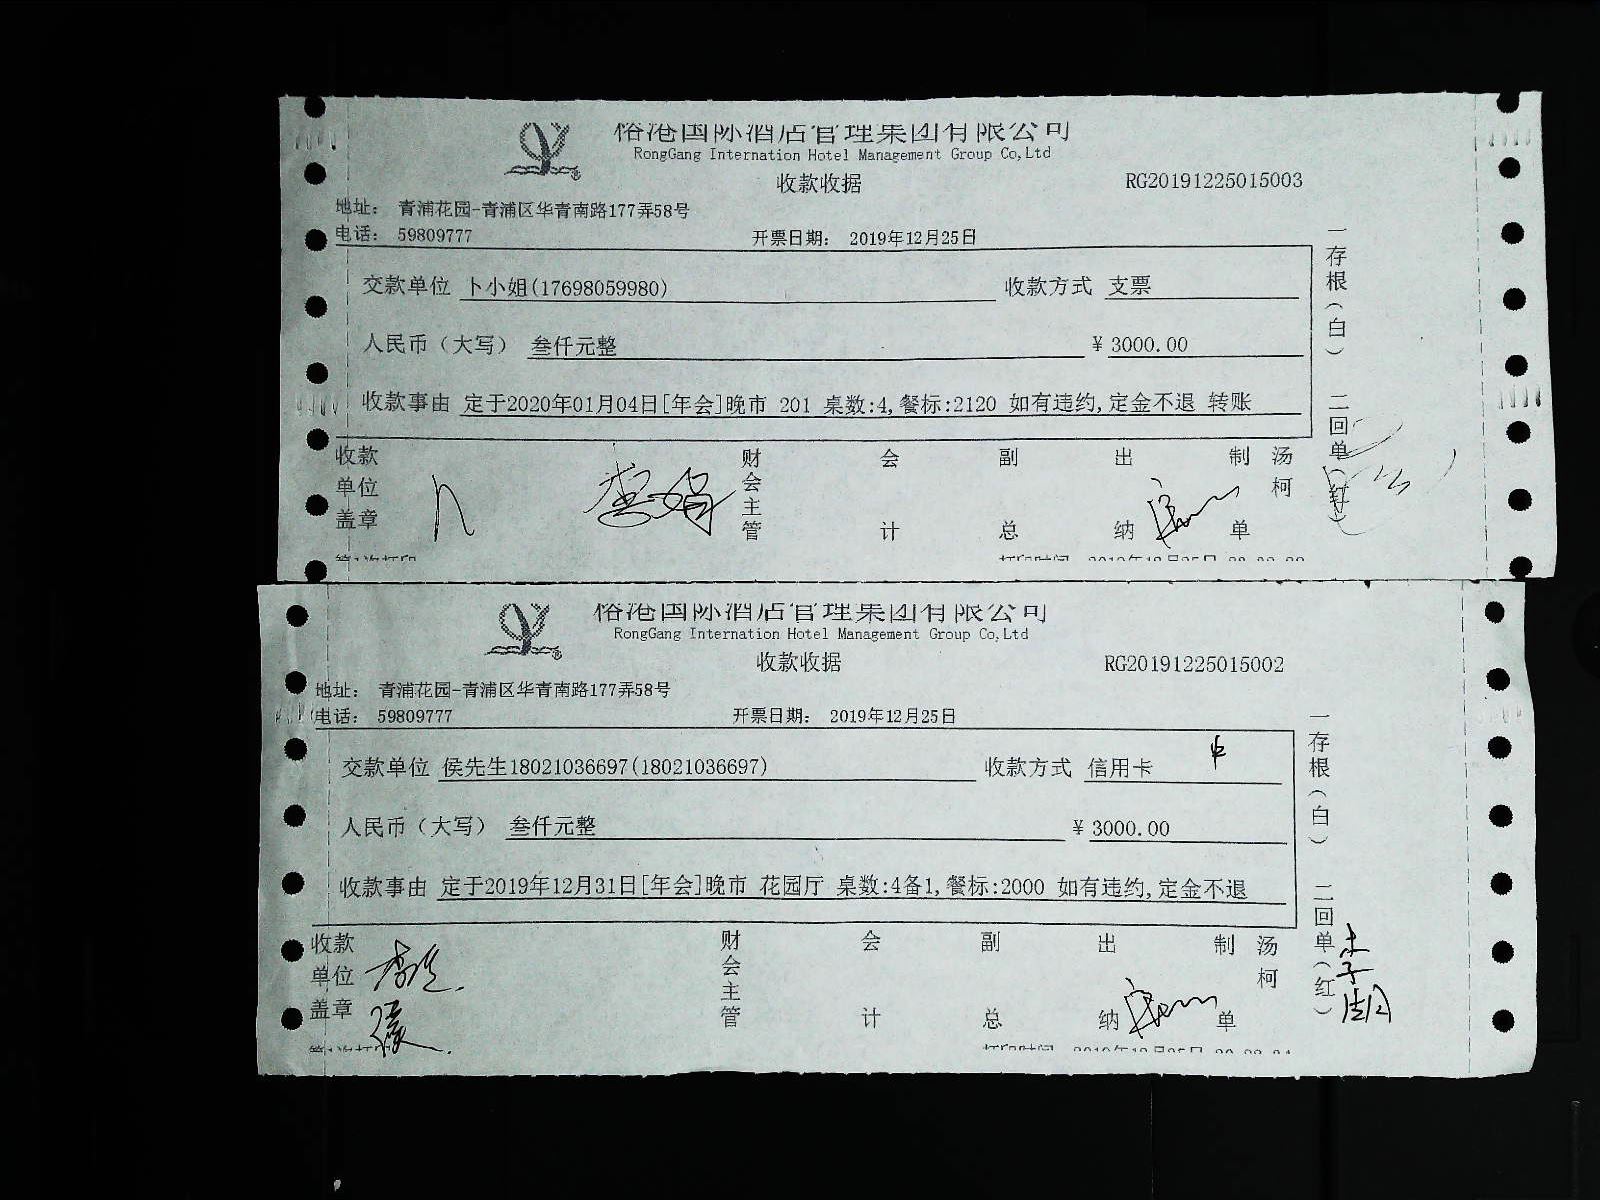 俗港国际酒店管理集团有限公司
RongGang Internation Hotel Management Group Co,Ltd
收款收据
RG20191225015003
地址： 青浦花园-青浦区华青南路177弄58号
电话： 59809777 开票日期： 2019年12月25日
交款单位 卜小姐(17698059980) 收款方式 支票
人民币（大写） 叁仟元整 ¥ 3000.00
收款事由 定于2020年01月04日[年会]晚市 201 桌数:4,餐标:2120 如有违约,定金不退 转账
收款单位盖章 财会主管 会计 副总 出纳 制单 汤柯
一存根（白） 二回单（红）
俗港国际酒店管理集团有限公司
RongGang Internation Hotel Management Group Co,Ltd
收款收据
RG20191225015002
地址： 青浦花园-青浦区华青南路177弄58号
电话： 59809777 开票日期： 2019年12月25日
交款单位 侯先生18021036697(18021036697) 收款方式 信用卡
人民币（大写） 叁仟元整 ¥ 3000.00
收款事由 定于2019年12月31日[年会]晚市 花园厅 桌数:4备1,餐标:2000 如有违约,定金不退
收款单位盖章 财会主管 会计 副总 出纳 制单 汤柯
一存根（白） 二回单（红）